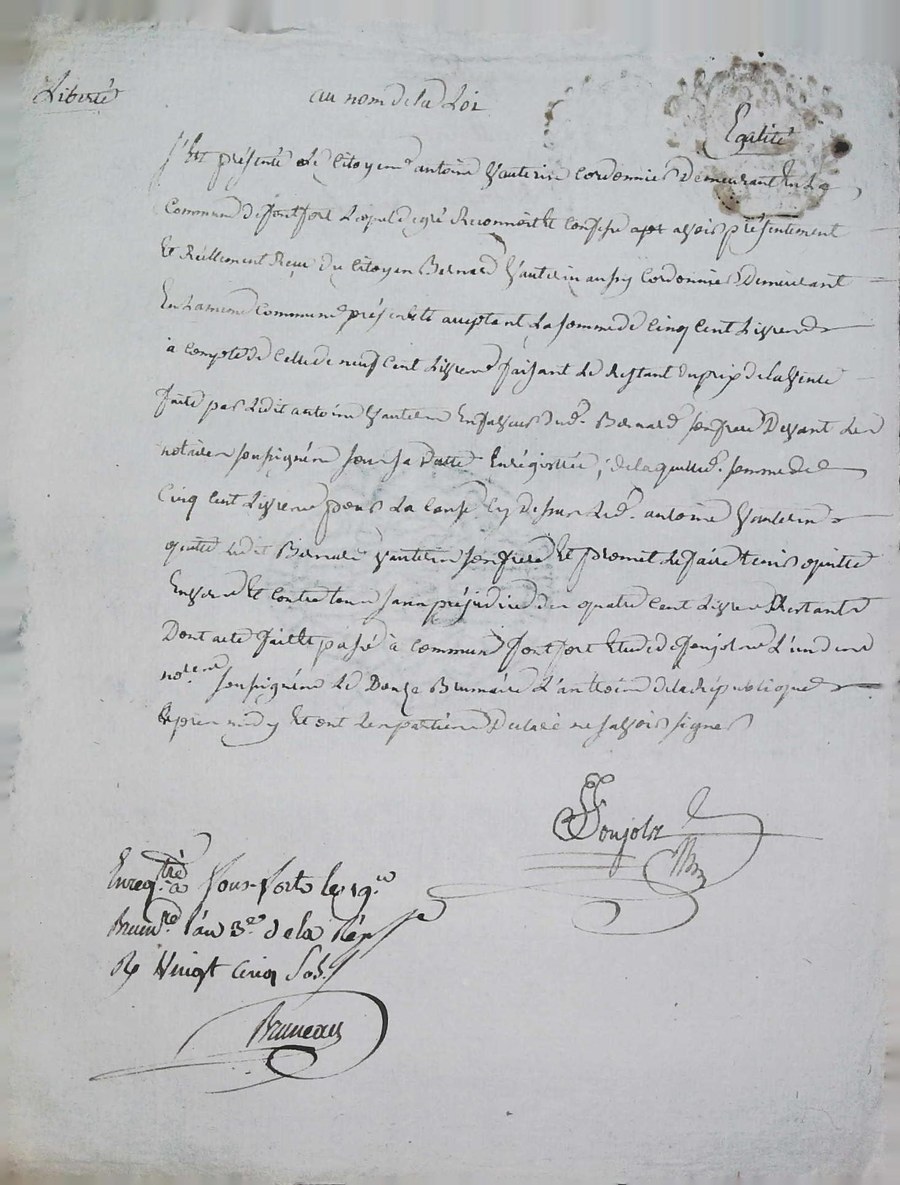 Liberté au nom de la Loi Egalité
S'est présenté Le Citoyen antoine Vauterin Cordonnier Demeurant En La
Commune de fontfort Lequel de gré Reconnoit et Confesse avoir présentement
Et Réellement Reçu Du Citoyen Bernard Vauterin aussy Cordonnier Demeurant
En La meme Commune présent et acceptant La somme de Cinq Cent Livres
à Compte de Celle de neuf Cent Livres faisant Le Restant du prix de la Vente
faite par Ledit antoine Vauterin En faveur dud. Bernard son frere Devant Les
notaires soussignés sous sa Datte Enrégistrée, de laquelle somme de
Cinq Cent Livres pour La Cause Cy dessus Led. antoine Vauterin
quitte Ledit Bernard Vauterin son frere Et promet Le faire tenir quitte
Envers Et Contre tous sans préjudice des quatre Cent Livres Restants
Dont acte fait Et passé à Commune fontfort Etude de L'un des
nores soussignés Le Douze Brumaire L'an troisième de la République
Et ont Les parties Declaré ne savoir signer
Enregtré à Fons-forts le 19.
Brumre. l'an 3e. de la Rép
R Vingt Cinq Sols
Bruneau